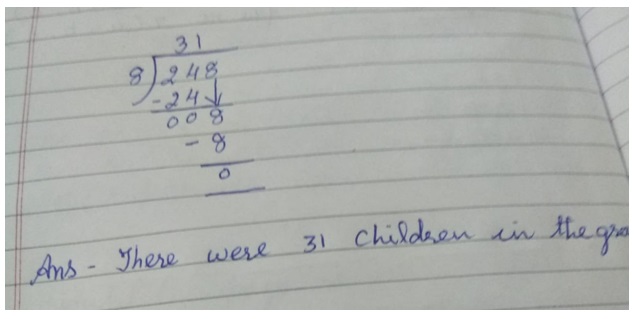 31
8)248
-24↓
008
- 8
0
Ans - There were 31 children in the